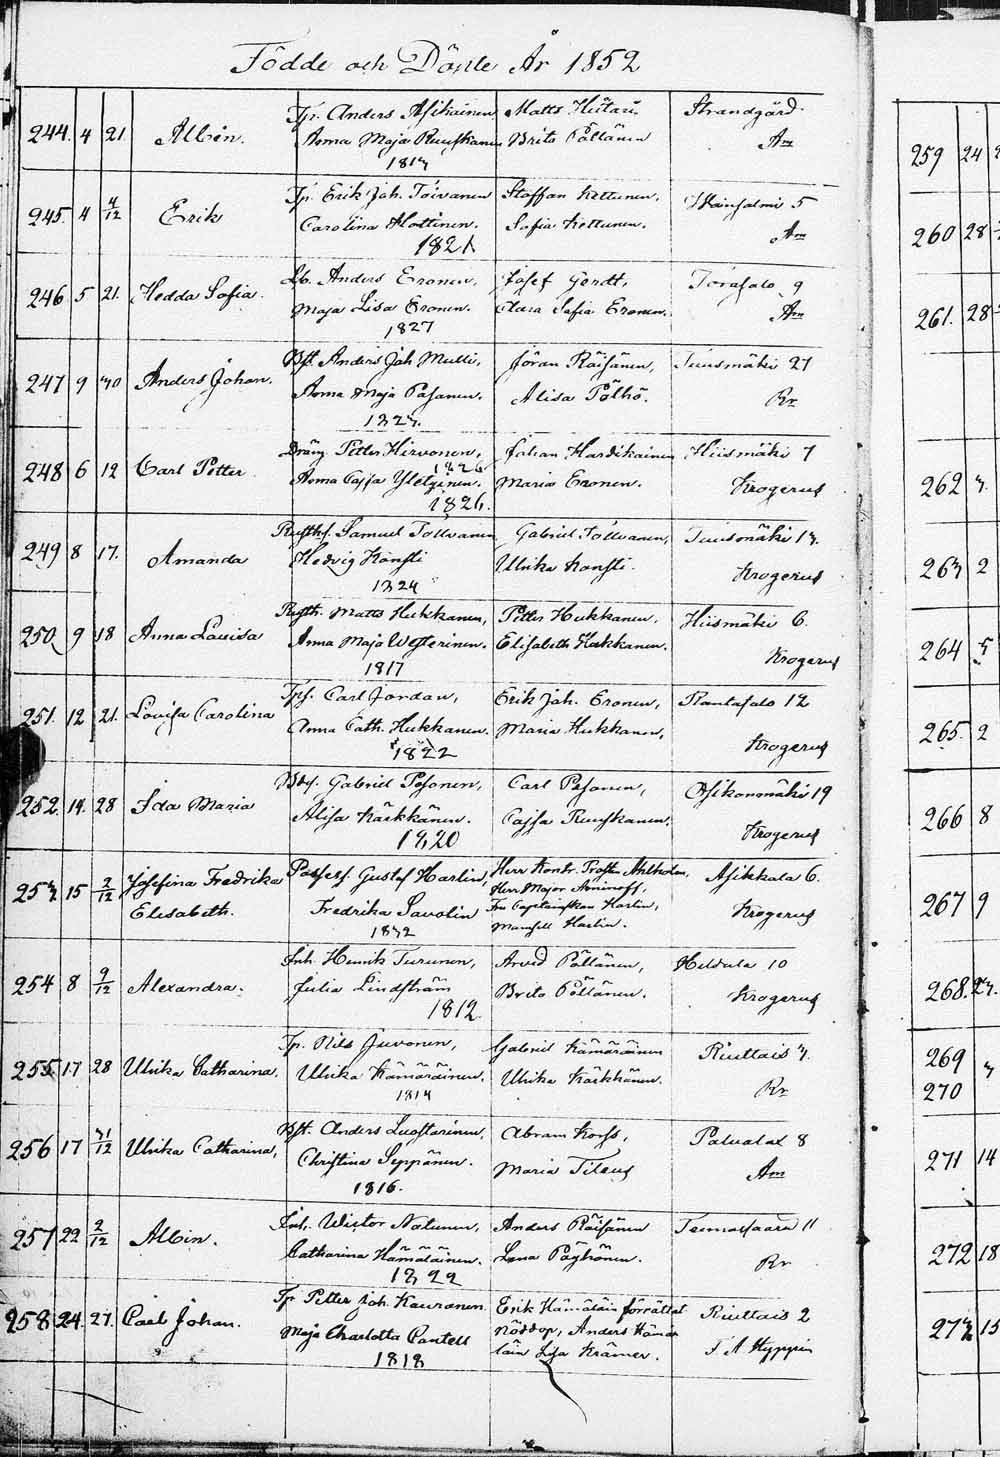 Födde och Döpte År 1852
244. 4 21 Albin. Tp. Anders Asikainen Matts Hutari Strandgård.
Anna Maja Ruuskanen Brita Pöllänen Am
1813
245. 4 4/12 Erik Tp. Erik Joh. Toivanen Staffan Kettunen.
Carolina Hottinen. Sofia Kettunen. Am
1821
246 5 21. Hedda Sofia. Lb. Anders Eronen, Josef Gerdt, Torasalo 9
Maja Lisa Eronen. Clara Sofia Eronen. Am
1827
247 9 30 Anders Johan. Bst. Anders Joh Mulli, Jöran Räisänen, Tuusmäki 27
Anna Maja Pasanen. Alisa Pölhö. Rr
1823.
248 6 12 Carl Petter Dräng Petter Hirvonen, Johan Hardikainen Hiismäki 7
1826
Anna Cajsa Maria Eronen. Krogerus
1826.
249 8 17. Amanda Rusth. Samuel Tollvanen Gabriel Tollvanen, Tuusmäki 13.
Hedvig Konsti Ulrika Konsti. Krogerus
1824
250 9 18 Anna Lovisa Rusth. Matts Hukkanen, Petter Hukkanen, Hiismäki 6.
Anna Maja Westerinen. Elisabeth Hukkanen. Krogerus
1817
251. 12 21. Lovisa Carolina Tps. Carl Jordan, Erik Joh. Eronen, Rantasalo 12
Anna Cath. Hukkanen. Maria Hukkanen. Krogerus
1822
252. 14. 28 Ida Maria Gabriel Pasonen, Carl Pasonen, Asikonmäki 19
Alisa Kärkkänen. Cajsa Ruuskanen. Krogerus
1820
253 15 2/12 Josefina Fredrika Possess. Gustaf Harlin, Herr Kontr. Prosten Ahlholm, Asikkala 6.
Elisabeth. Herr Major Aminoff,
Fredrika Savolin Fru Capitainskan Harlin, Krogerus
1832 Mamsell Harlin.
254 8 9/12 Alexandra. Inh. Henrik Turunen, Arvid Pöllänen, Heldula 10
Julia Lindström Brita Pöllänen. Krogerus
1812.
255. 17 28 Ulrika Catharina. Tp. Nils Juvonen, Gabriel Kämäräinen Riuttais 3.
Ulrika Kämäräinen. Ulrika Kärkkänen. Rr
1814
256 17 31/12 Ulrika Catharina, Bst. Anders Luostarinen, Abram Korss, Palvalax 8
Christina Seppänen. Maria Tileus Am
1816.
257 22 2/12 Albin. Inh. Wictor Notunen, Anders Räisänen Tennassaara 11
Catharina Hämäläinen. Lena Pöyhönen. Rr
1822
258 24. 27. Carl Johan. Tp Petter Joh. Kauranen. Erik Hämäläin förrättat Riuttais 2
Maja Charlotta Cantell nöddop, Anders Hämä-
läin Lisa Krämer. F A Hyppin
1818
259 24
260 28
261. 28
262 3.
263 2
264 5
265. 2
266 8
267 9
268. 23.
269 3
270
271 14
272 18
273 15